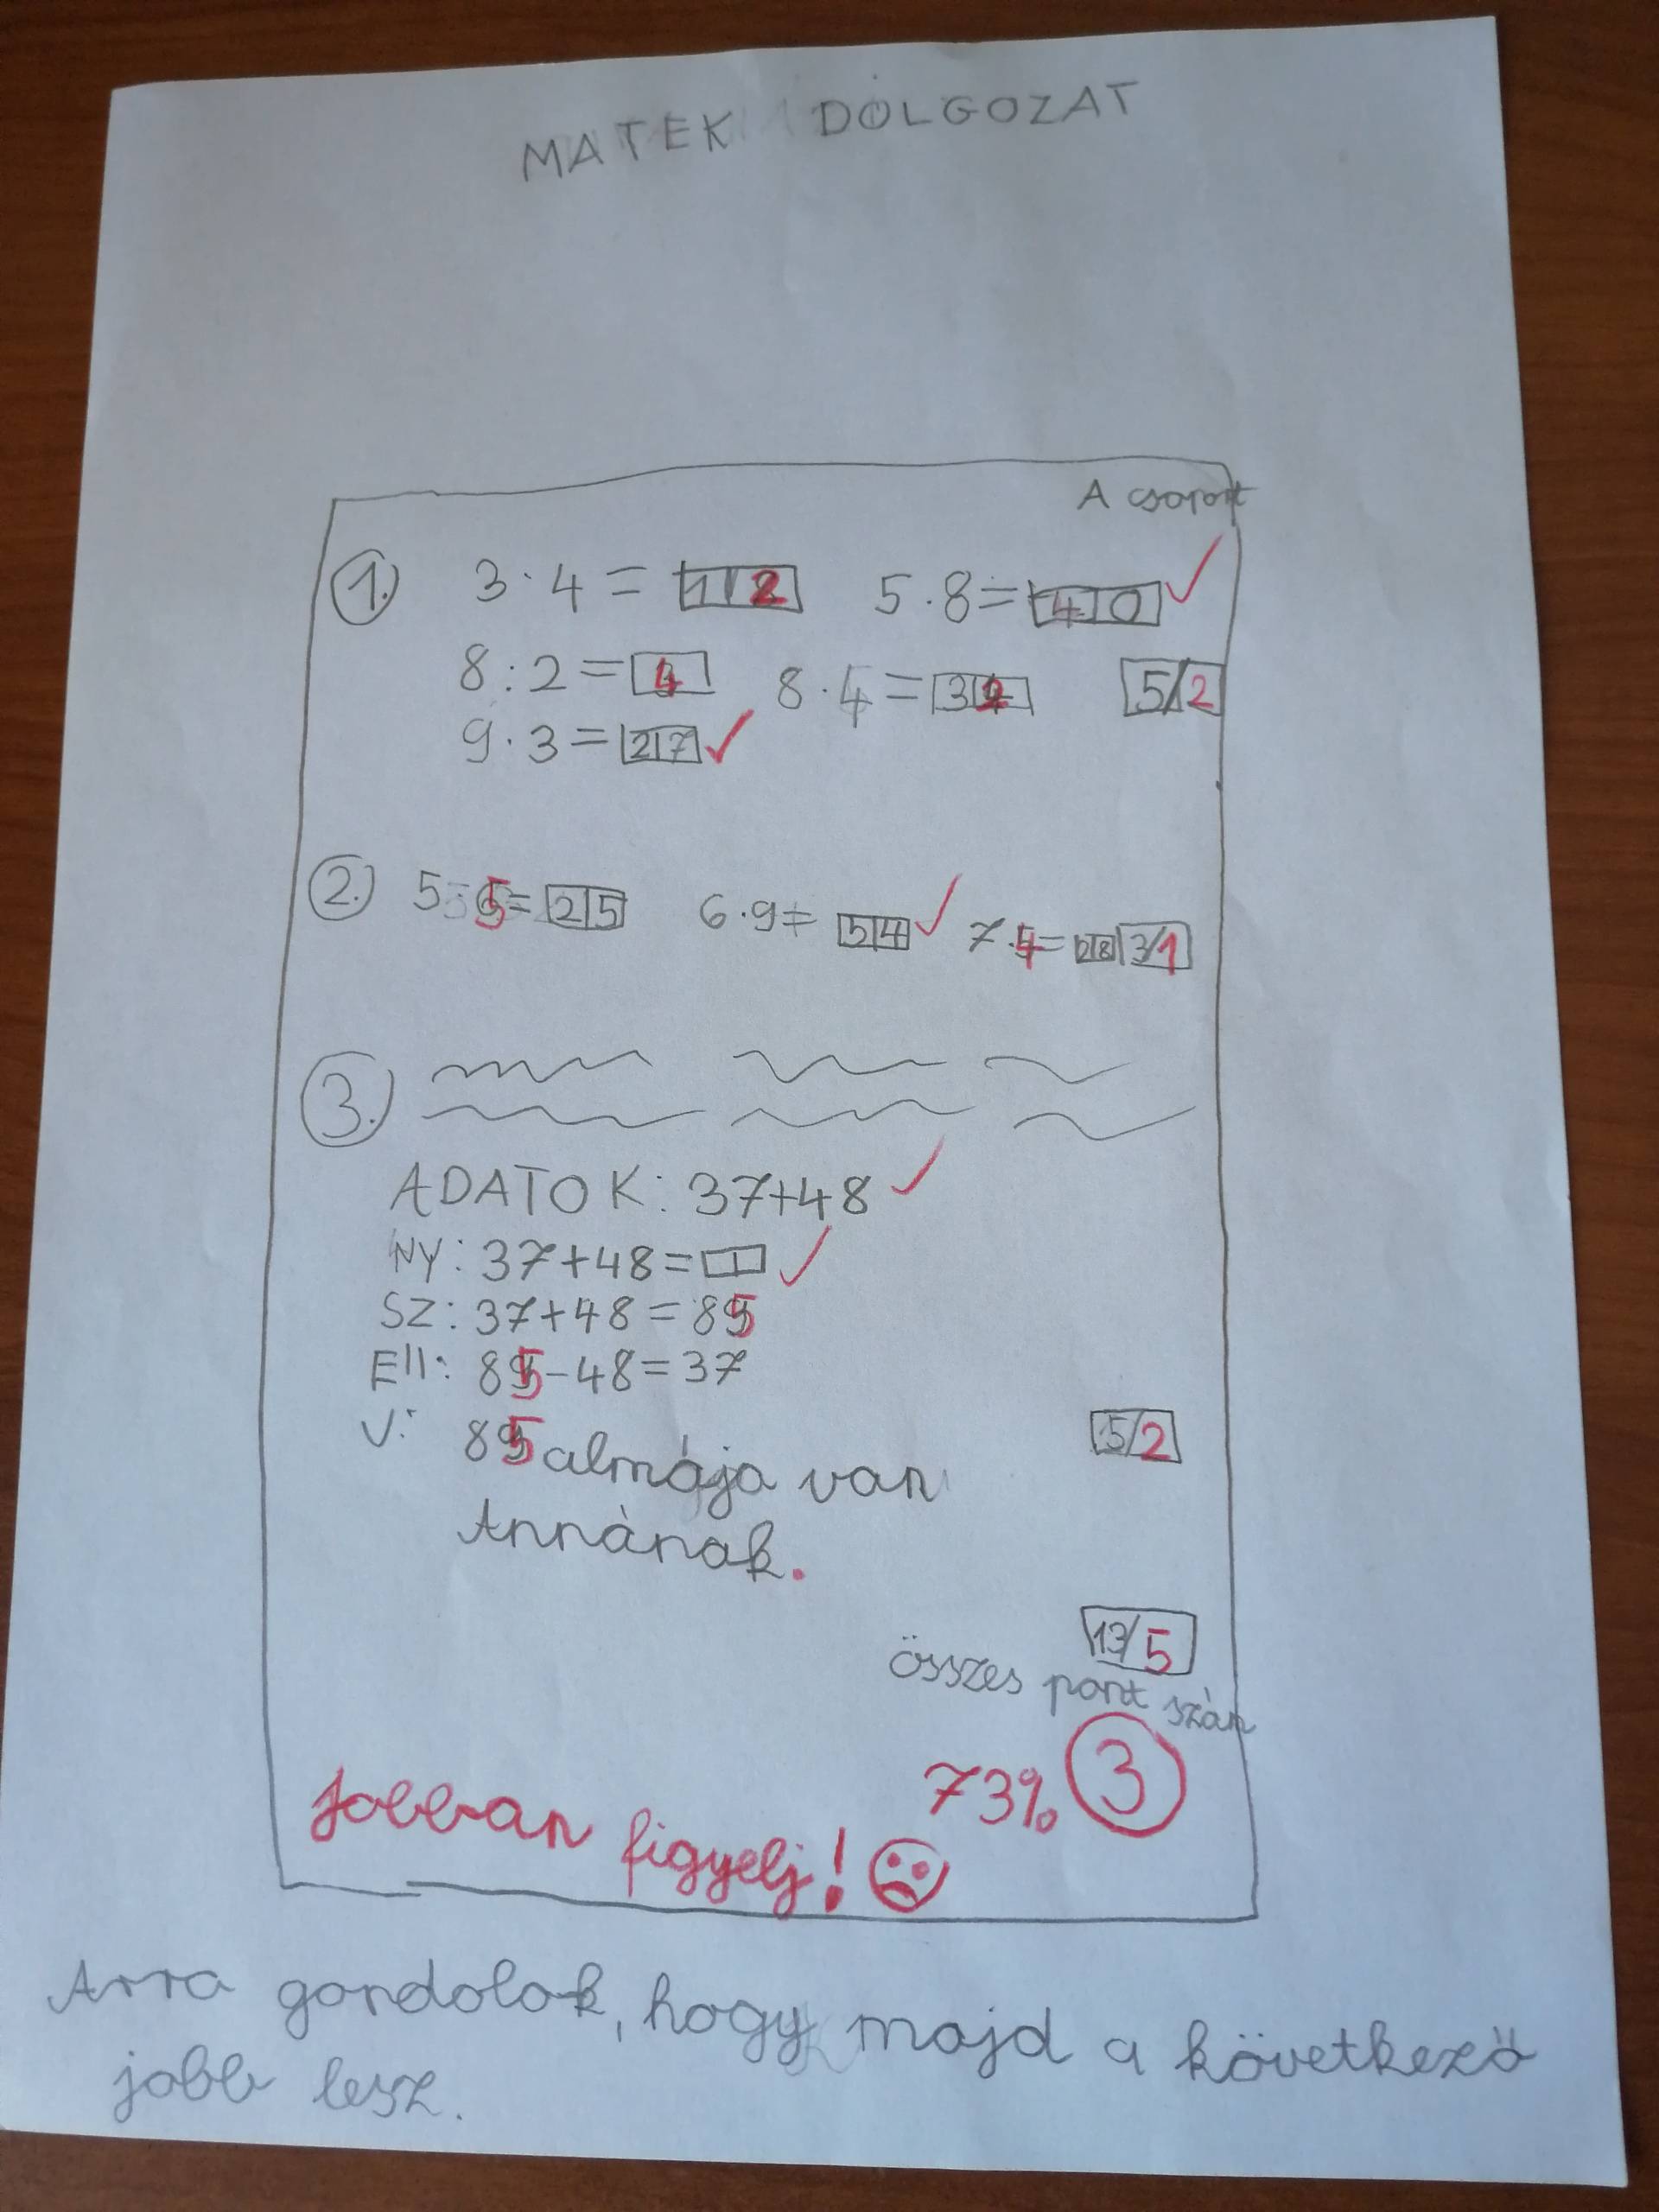 MATEK DOLGOZAT
A csoport
1. 3·4=12 5·8=40
8:2=4 8·4=32 5/2
9·3=27
2. 5·5=25 6·9=54 7·4=28 3/1
3.
ADATOK: 37+48
NY: 37+48=
SZ: 37+48=85
Ell: 85-48=37
V: 85 almája van 5/2
Annának.
13/5
összes pont szám
73% 3
Jobban figyelj!
Arra gondolok, hogy majd a következő
jobb lesz.